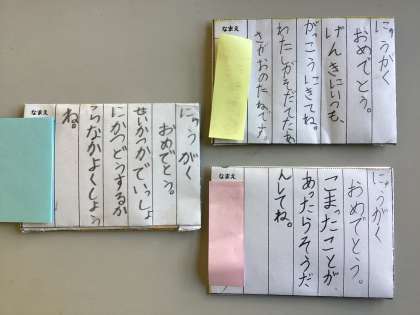 にゅうがく
おめでとう。
げんきにいつも、
がっこうにきてね。
わたしがそだてたあ
さがおのたねです
なまえ
にゅうがく
おめでとう。
せいかつかでいっしょ
にかつどうするか
らなかよくしょう
ね。
なまえ
にゅうがく
おめでとう。
こまったことが
あったらそうだ
んしてね。
なまえ